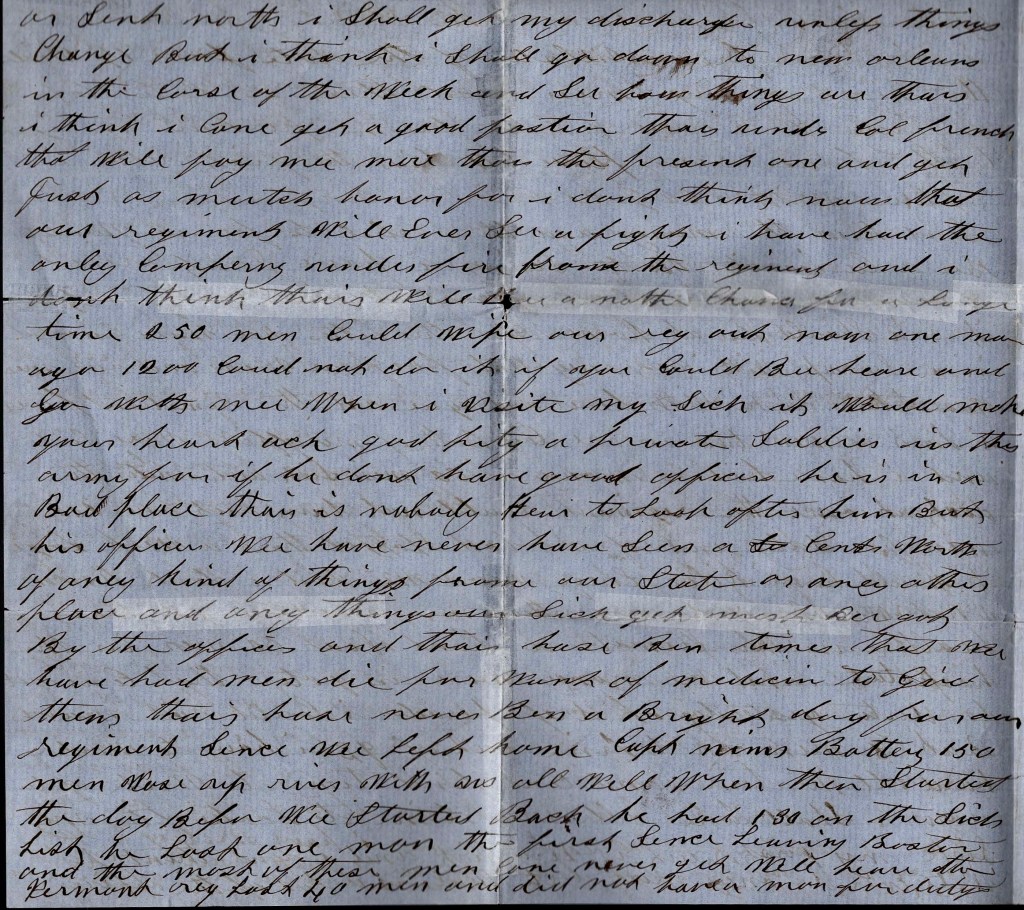 or Sent north i Shall get my discharge unless things
Change But i think i Shall go down to new orleans
in the Corse of the Week and See how things are thair
i think i Cane get a good postion thair unde Col french
that Will pay mee more than the present one and get
Just as mutch honor for i dont think now that
our regiment Will Ever See a fight i have had the
onley Comperny under fire from the regiment and i
dont think thair Will Bee a nothe Chance for a Longe
time 250 men Could Wipe our reg out now one mon
ago 1200 Coud not do it if you Could Bee heare and
Go With mee When i visite my Sick it Would make
your heart ack god pity a private Soldier in this
army for if he dont have good officers he is in a
Bad place thair is nobody Hear to Look after him But
his officers Wee have never have Seen a Cents Worth
of aney kind of things frome our State or aney other
place and aney things our Sick get most Bee got
By the offices and thair hase Ben times that Wee
have had men die for Want of medicin to Give
them thair hase never Ben a Bright day for our
regiment Sence Wee Left home Capt nims Battery 150
men Wose up river With us all Well When then Started
the day Befor Wee Started Back he had 130 on the Sick
List he Lost one man the first Sence Leaving Boston
and the most of these men Cane never get Well heare the
Vermont reg Lost 40 men and did not have a man for duty